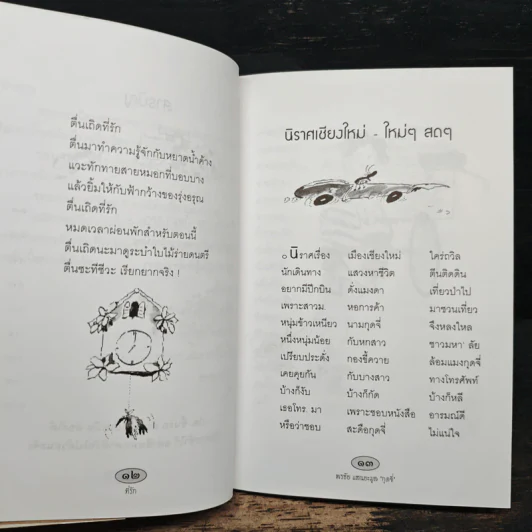 ตื่นเถิดที่รัก
ตื่นมาทำความรู้จักกับหยาดน้ำค้าง
แวะทักทายสายหมอกที่บอบบาง
แล้วยิ้มให้กับฟ้ากว้างของรุ่งอรุณ
ตื่นเถิดที่รัก
หมดเวลาผ่อนพักสำหรับตอนนี้
ตื่นเถิดนะมาดูระบำใบไม้ร่ายดนตรี
ตื่นซะทีซีวะ เรียกยากจริง !
๑๒
ที่รัก
นิราศเชียงใหม่ - ใหม่ๆ สดๆ
๐ นิราศเรื่อง เมืองเชียงใหม่ ใคร่ถวิล
นักเดินทาง แสวงหาชีวิต ตีนติดดิน
อยากมีปีกบิน ดั่งแมงดา เที่ยวป่าไป
เพราะสาวม. หอการค้า มาชวนเที่ยว
หนุ่มข้าวเหนียว นามกุดจี่ จึงหลงใหล
หนึ่งหนุ่มน้อย กับหกสาว ชาวมหา' ลัย
เปรียบประดั่ง กองขี้ควาย ล้อมแมงกุดจี่
เคยคุยกัน กับบางสาว ทางโทรศัพท์
บ้างก็งับ บ้างก็กัด บ้างก็หลี
เธอโทร. มา เพราะชอบหนังสือ อารมณ์ดี
หรือว่าชอบ สะดือกุดจี่ ไม่แน่ใจ
๑๓
พรชัย แสนยะมูล "กุดจี่"